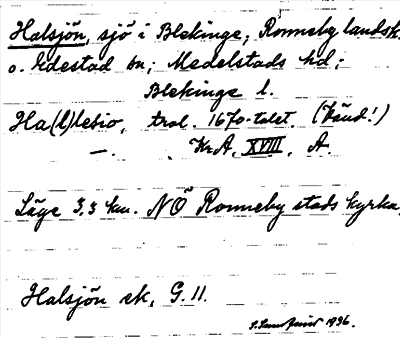 Halsjön, sjö i Blekinge; Ronneby landsk.
o. Edestad sn; Medelstads hd;
Blekinge l.
Ha(l)lesio, trol. 1670-talet. (Känd!)
—. Kr.A. XVIII. A.
Läge 3,3 km. NÖ Ronneby stads kyrka.
Halsjön ek, G. 11.
1936.